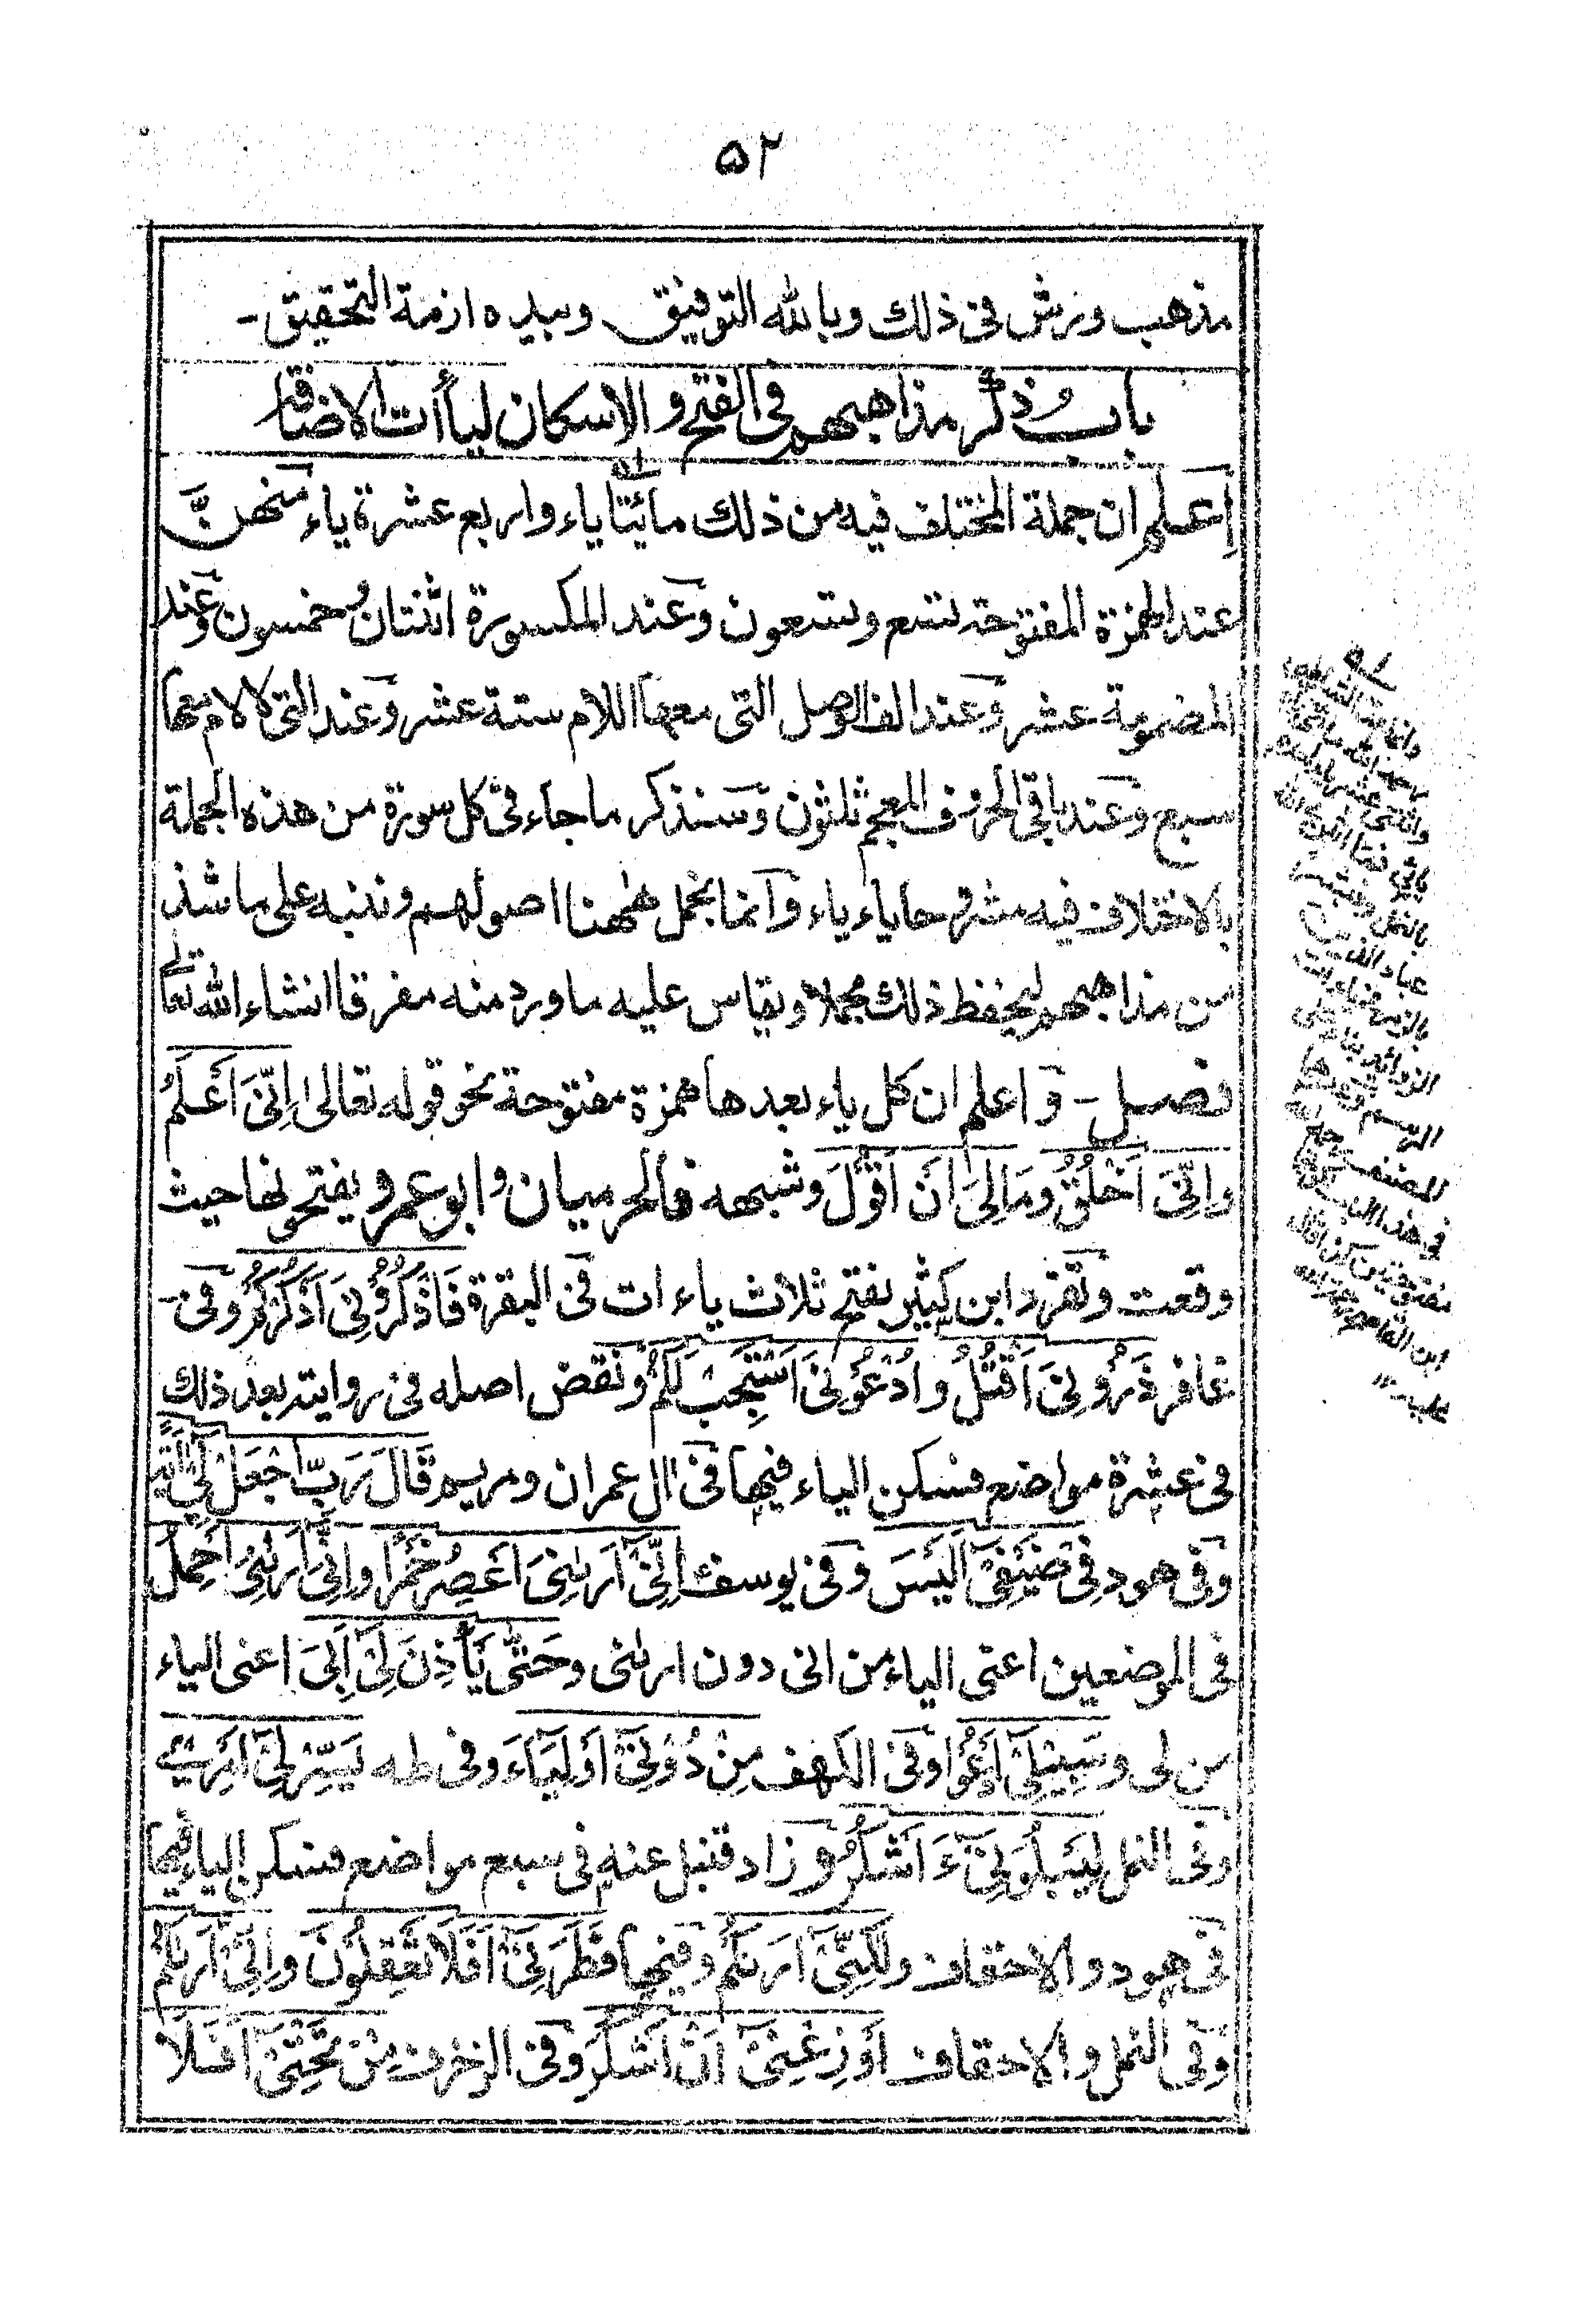 ۵۲
مذهب ورش فى ذلك وبالله التوفيق وبيده ازمة التحقيق-
باب ذكر مذاهبهم فى الفتح و الاسكان لياأت الاضافة
اعلم ان جملة المختلف فيه من ذلك مائيتا ياء واربع عشرة ياء منهنَّ
عند الهمزة المفتوحة تسع وتسعون وعند المكسورة اثنتان وخمسون وعند
المضمومة عشر وعند الف الوصل التى معها اللام ستة عشر وعند التى لا لام معها
سبع وعند باقى الحروف المعجم ثلثون وسنذكر ما جاء فى كل سورة من هذه الجملة
بالاختلاف فيه مشروحا ياء ياء وانما نجمل ههنا اصولهم وننبه على ما شذ
من مذاهبهم ليحفظ ذلك مجملا ويقاس عليه ما ورد منه مفرقا انشاء الله تعالے
فصل- و اعلم ان كل ياء بعدها همزة مفتوحة نحو قوله تعالى اِنِّىَ اَعْلَمُ
وانِّىَ اَخْلُقُ ومَا لِىَ اَنْ اَقُوْلَ وشبهه فالحرميان و ابو عمرو يفتحونها حيث
وقعت وتفرد ابن كثير بفتح ثلاث ياء ات فى البقرة فَاذْكُرُوْنِىَ اَذْكُرْكُمْ وفى-
غافر ذَرُوْنِىَ اَقْتُلْ و ادْعُوْنِىَ اَسْتَجِبْ لَكُمْ ونقض اصله فى روايتيه بعد ذلك
فى عشرة مواضع فسكن الياء فيها فى ال عمران ومريم قَالَ رَبِّ اجْعَلْ لِّىْٓ اٰيَةً
وفى هود فِىْ ضَيْفِىْٓ اَلَيْسَ وفى يوسف اِنِّىْٓ اَرٰىنِىَ اَعْصِرُ خَمْرًا وانِّىْٓ اَرٰىنِىَ اَحْمِلُ
فى الموضعين اعنى الياء من انى دون ارٰىنى وحَتّٰى يَأْذَنَ لِىْٓ اَبِىَ اعنى الياء
من لى وسَبِيْلِىْٓ اَدْعُوْا وفى الكهف مِنْ دُوْنِىْٓ اَوْلِيَآءَ وفى طه يَسِّرْ لِىْٓ اَمْرِىْ
وفى النمل لِيَبْلُوَنِىْٓ ءَ اَشْكُرُ و زاد قنبل عنه فى سبع مواضع فسكن الياء فيها
فى هود و الاحقاف ولٰكِنِّىْٓ اَرٰىكُمْ وفيها فَطَرَنِىْٓ اَفَلَا تَعْقِلُوْنَ وانِّىْٓ اَرٰىكُمْ
وفى النمل و الاحقاف اَوْزِعْنِىْٓ اَنْ اَشْكُرَ وفى الزخرف مِنْ تَحْتِىْٓ اَفَلَا